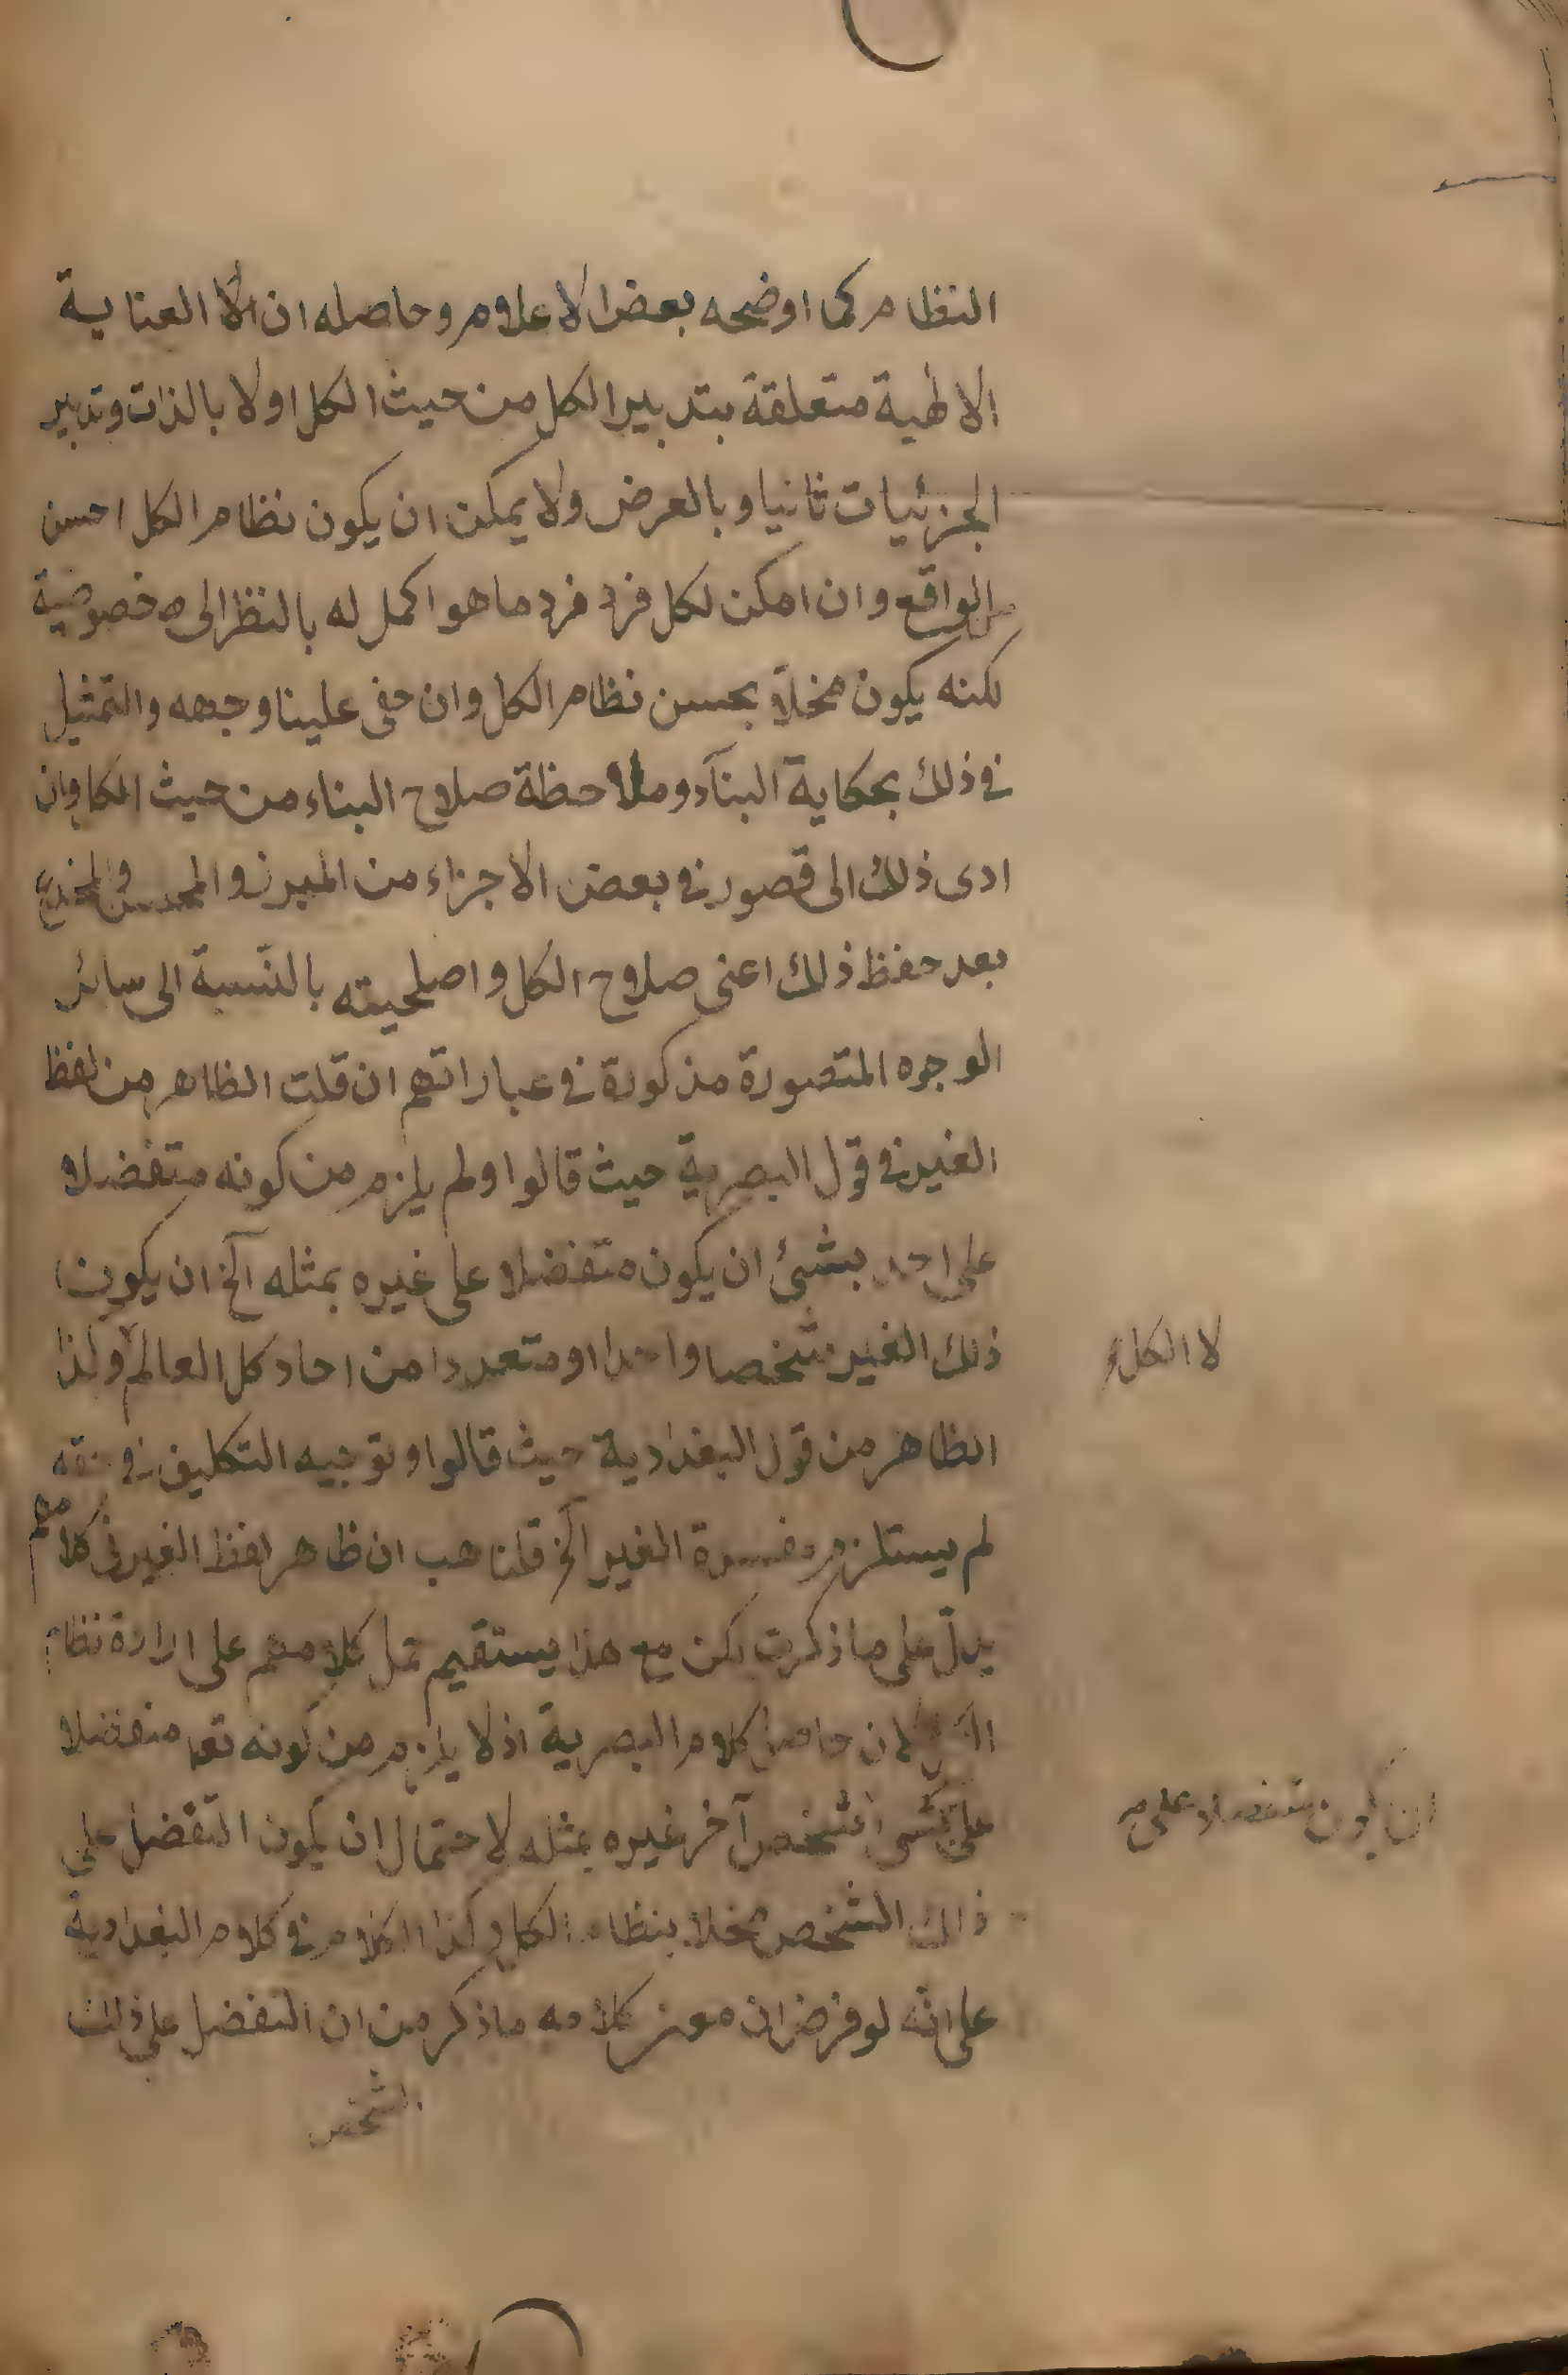 النظام كما اوضحه بعض الاعلام وحاصله ان العناية
الالهية متعلقة بتدبير الكل من حيث الكل اولا بالذات وتدبير
الجزئيات ثانيا وبالعرض ولا يمكن ان يكون نظام الكل احسن
من الواقع وان امكن لكل فرد فرد ما هو اكمل له بالنظر الى خصوصية
لكنه يكون مخلا بحسن نظام الكل وان خفى علينا وجهه والتمثيل
في ذلك بحكاية البناء وملاحظة صلاح البناء من حيث الكل وان
ادى ذلك الى قصور في بعض الاجزاء من المبرز والمجلس والمخدع
بعد حفظ ذلك اعنى صلاح الكل واصلحيته بالنسبة الى سائر
الوجوه المتصورة مذكورة في عباراتهم ان قلت الظاهر من لفظ
الغير في قول البصرية حيث قالوا ولم يلزم من كونه متفضلا
على احد بشئ ان يكون متفضلا على غيره بمثله آلخ ان يكون
ذلك الغير شخصا واحدا او متعددا من احاد كل العالم وكذا
لا الكل
الظاهر من قول البغدادية حيث قالوا وتوجيه التكليف في حقه
لم يستلزم مفسدة الغير آلخ قلنا هب ان ظاهر لفظ الغير في كلامهم
يدلّ على ما ذكرت لكن مع هذا يستقيم حمل كلامهم على ارادة نظام
الكل لان حاصل كلام البصرية اذ لا يلزم من كونه تعا متفضلا
على شئ شخص آخر غيره بمثله لاحتمال ان يكون التفضل على
ان يكون متفضلا على
ذلك الشخص مخلا بنظام الكل وكذا الكلام في كلام البغدادية
على انّه لو فرض ان معنى كلامه ما ذكر من ان التفضل على ذلك
الشخص